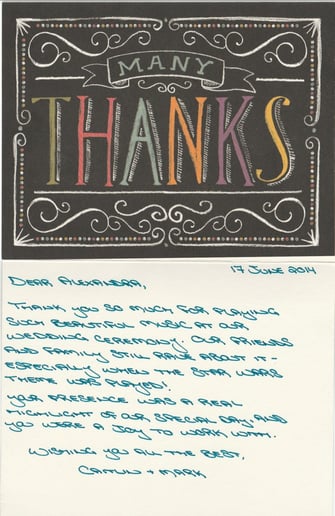 MANY
THANKS
17 JUNE 2014
DEAR ALEXANDRA,
THANK YOU SO MUCH FOR PLAYING
SUCH BEAUTIFUL MUSIC AT OUR
WEDDING CEREMONY. OUR FRIENDS
AND FAMILY STILL RAVE ABOUT IT -
ESPECIALLY WHEN THE STAR WARS
THEME WAS PLAYED!
YOUR PRESENCE WAS A REAL
HIGHLIGHT OF OUR SPECIAL DAY, AND
YOU WERE A JOY TO WORK WITH.
WISHING YOU ALL THE BEST,
CAITLIN + MARK